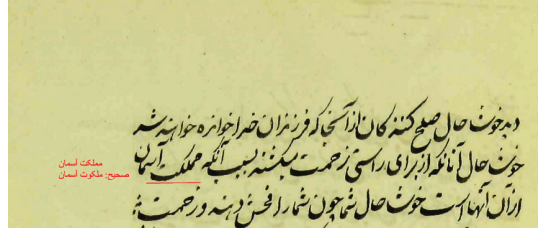 دید خوش حال صلح کننده کان از آنجا که فرزندان خدا خوانده خواهند شد
خوش حال آنانکه از برای راستی زحمت میکشند بسبب آنکه مملکت آسمان
از آن آنها است خوش حال شما چون شما را فحش دهند و زحمت
مملکت آسمان
صحیح: ملکوت آسمان